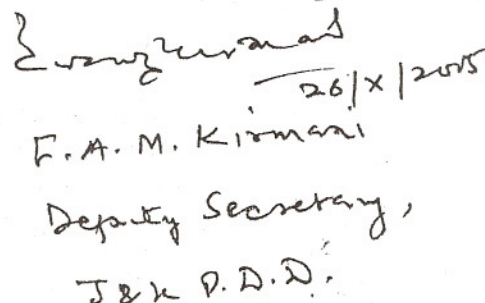 26/X/2005
F. A. M. Kirmani
Deputy Secretary,
J & K P.D.D.